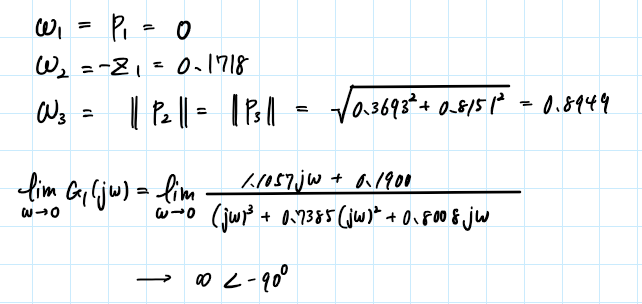 ω₁ = P₁ = 0
ω₂ = -Z₁ = 0.1718
ω₃ = ‖P₂‖ = ‖P₃‖ = √(0.3693² + 0.8151²) = 0.8949
lim_{ω→0} G₁(jω) = lim_{ω→0} (1.1057jω + 0.1900) / ((jω)³ + 0.7385(jω)² + 0.8008jω)
→ ∞ ∠-90°